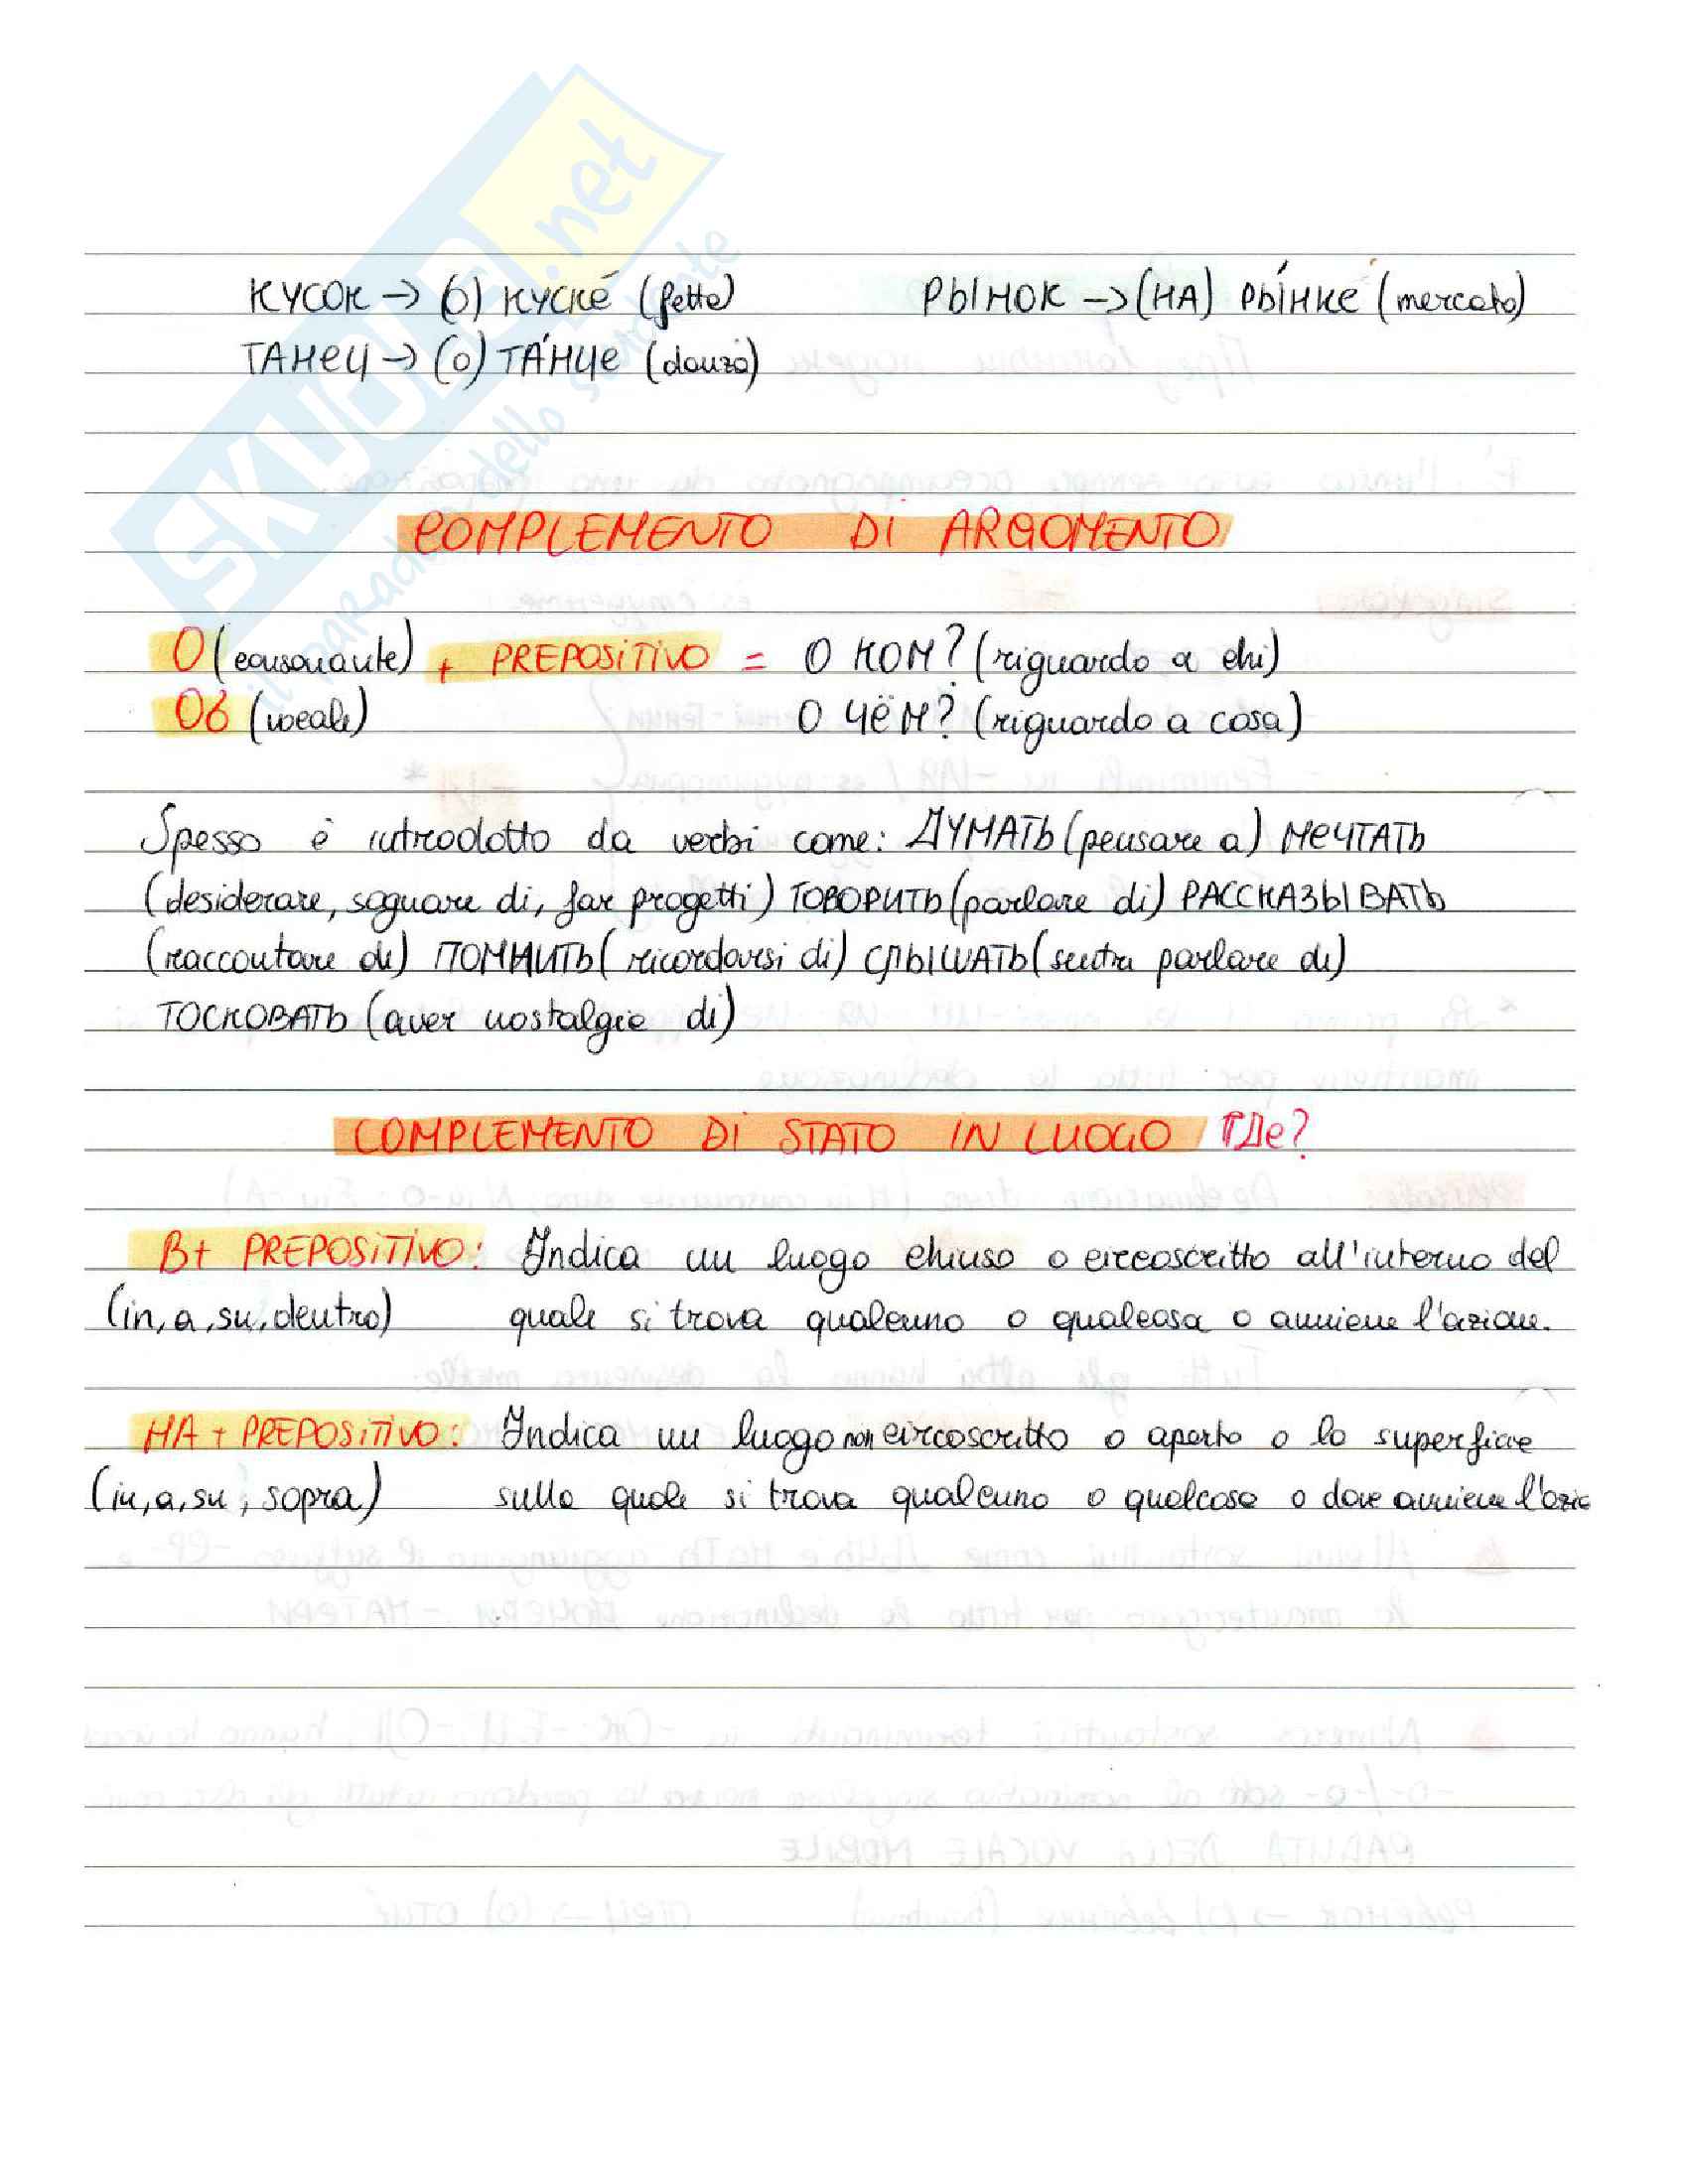 КУСОК → (О) КУСКЕ́ (fetta) РЫНОК → (НА) РЫ́НКЕ (mercato)
ТАНЕЦ → (О) ТА́НЦЕ (danza)
COMPLEMENTO DI ARGOMENTO
О (consonante) + PREPOSITIVO = О КОМ? (riguardo a chi)
Об (vocale) О ЧЁМ? (riguardo a cosa)
Spesso è introdotto da verbi come: ДУМАТЬ (pensare a) МЕЧТАТЬ
(desiderare, sognare di, far progetti) ГОВОРИТЬ (parlare di) РАССКАЗЫВАТЬ
(raccontare di) ПОМНИТЬ (ricordarsi di) СЛЫШАТЬ (sentir parlare di)
ТОСКОВАТЬ (aver nostalgia di)
COMPLEMENTO DI STATO IN LUOGO ГДЕ?
В + PREPOSITIVO: Indica un luogo chiuso o circoscritto all'interno del
(in, a, su, dentro) quale si trova qualcuno o qualcosa o avviene l'azione.
НА + PREPOSITIVO: Indica un luogo non circoscritto o aperto o la superficie
(in, a, su, sopra) sulla quale si trova qualcuno o qualcosa o dove avviene l'azio
SKUOLA.net
il paradiso dello studente